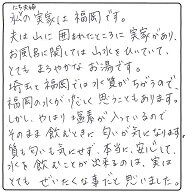 にち夫婦
私の実家は福岡です。
夫は山に囲まれたところに実家があり、
お風呂に関しては山水を引いていて、
とてもまろやかなお湯です。
埼玉と福岡では水質がちがうので、
福岡の水がかたく思うこともあります。
しかし、やはり塩素が入っているので
そのまま飲むときに匂いが気になります。
質も匂いも気にせず、本当に安心して、
水を飲むことが出来るのは、実は
とても ぜいたくな事だと思いました。